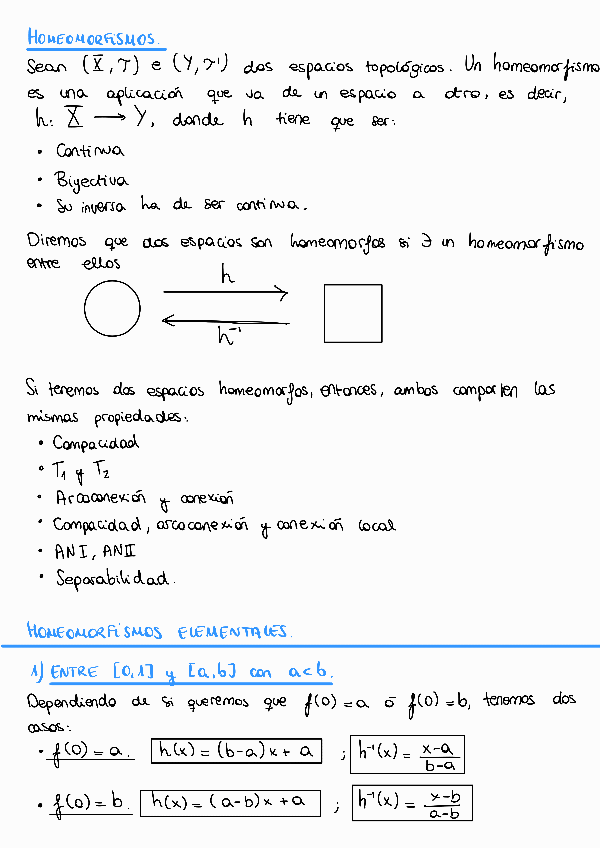 HOMEOMORFISMOS.
Sean (X, τ) e (Y, τ') dos espacios topológicos. Un homeomorfismo
es una aplicación que va de un espacio a otro, es decir,
h: X → Y, donde h tiene que ser:
• Continua
• Biyectiva
• Su inversa ha de ser continua.
Diremos que dos espacios son homeomorfos si ∃ un homeomorfismo
entre ellos
h
h⁻¹
Si tenemos dos espacios homeomorfos, entonces, ambos comparten las
mismas propiedades:
• Compacidad
• T₁ y T₂
• Arcoconexión y conexión
• Compacidad, arcoconexión y conexión local
• ANI, ANII
• Separabilidad.
HOMEOMORFISMOS ELEMENTALES.
1) ENTRE [0,1] y [a,b] con a<b.
Dependiendo de si queremos que f(0)=a ó f(0)=b, tenemos dos
casos:
• f(0)=a. h(x)=(b-a)x+a ; h⁻¹(x)=(x-a)/(b-a)
• f(0)=b. h(x)=(a-b)x+a ; h⁻¹(x)=(x-b)/(a-b)